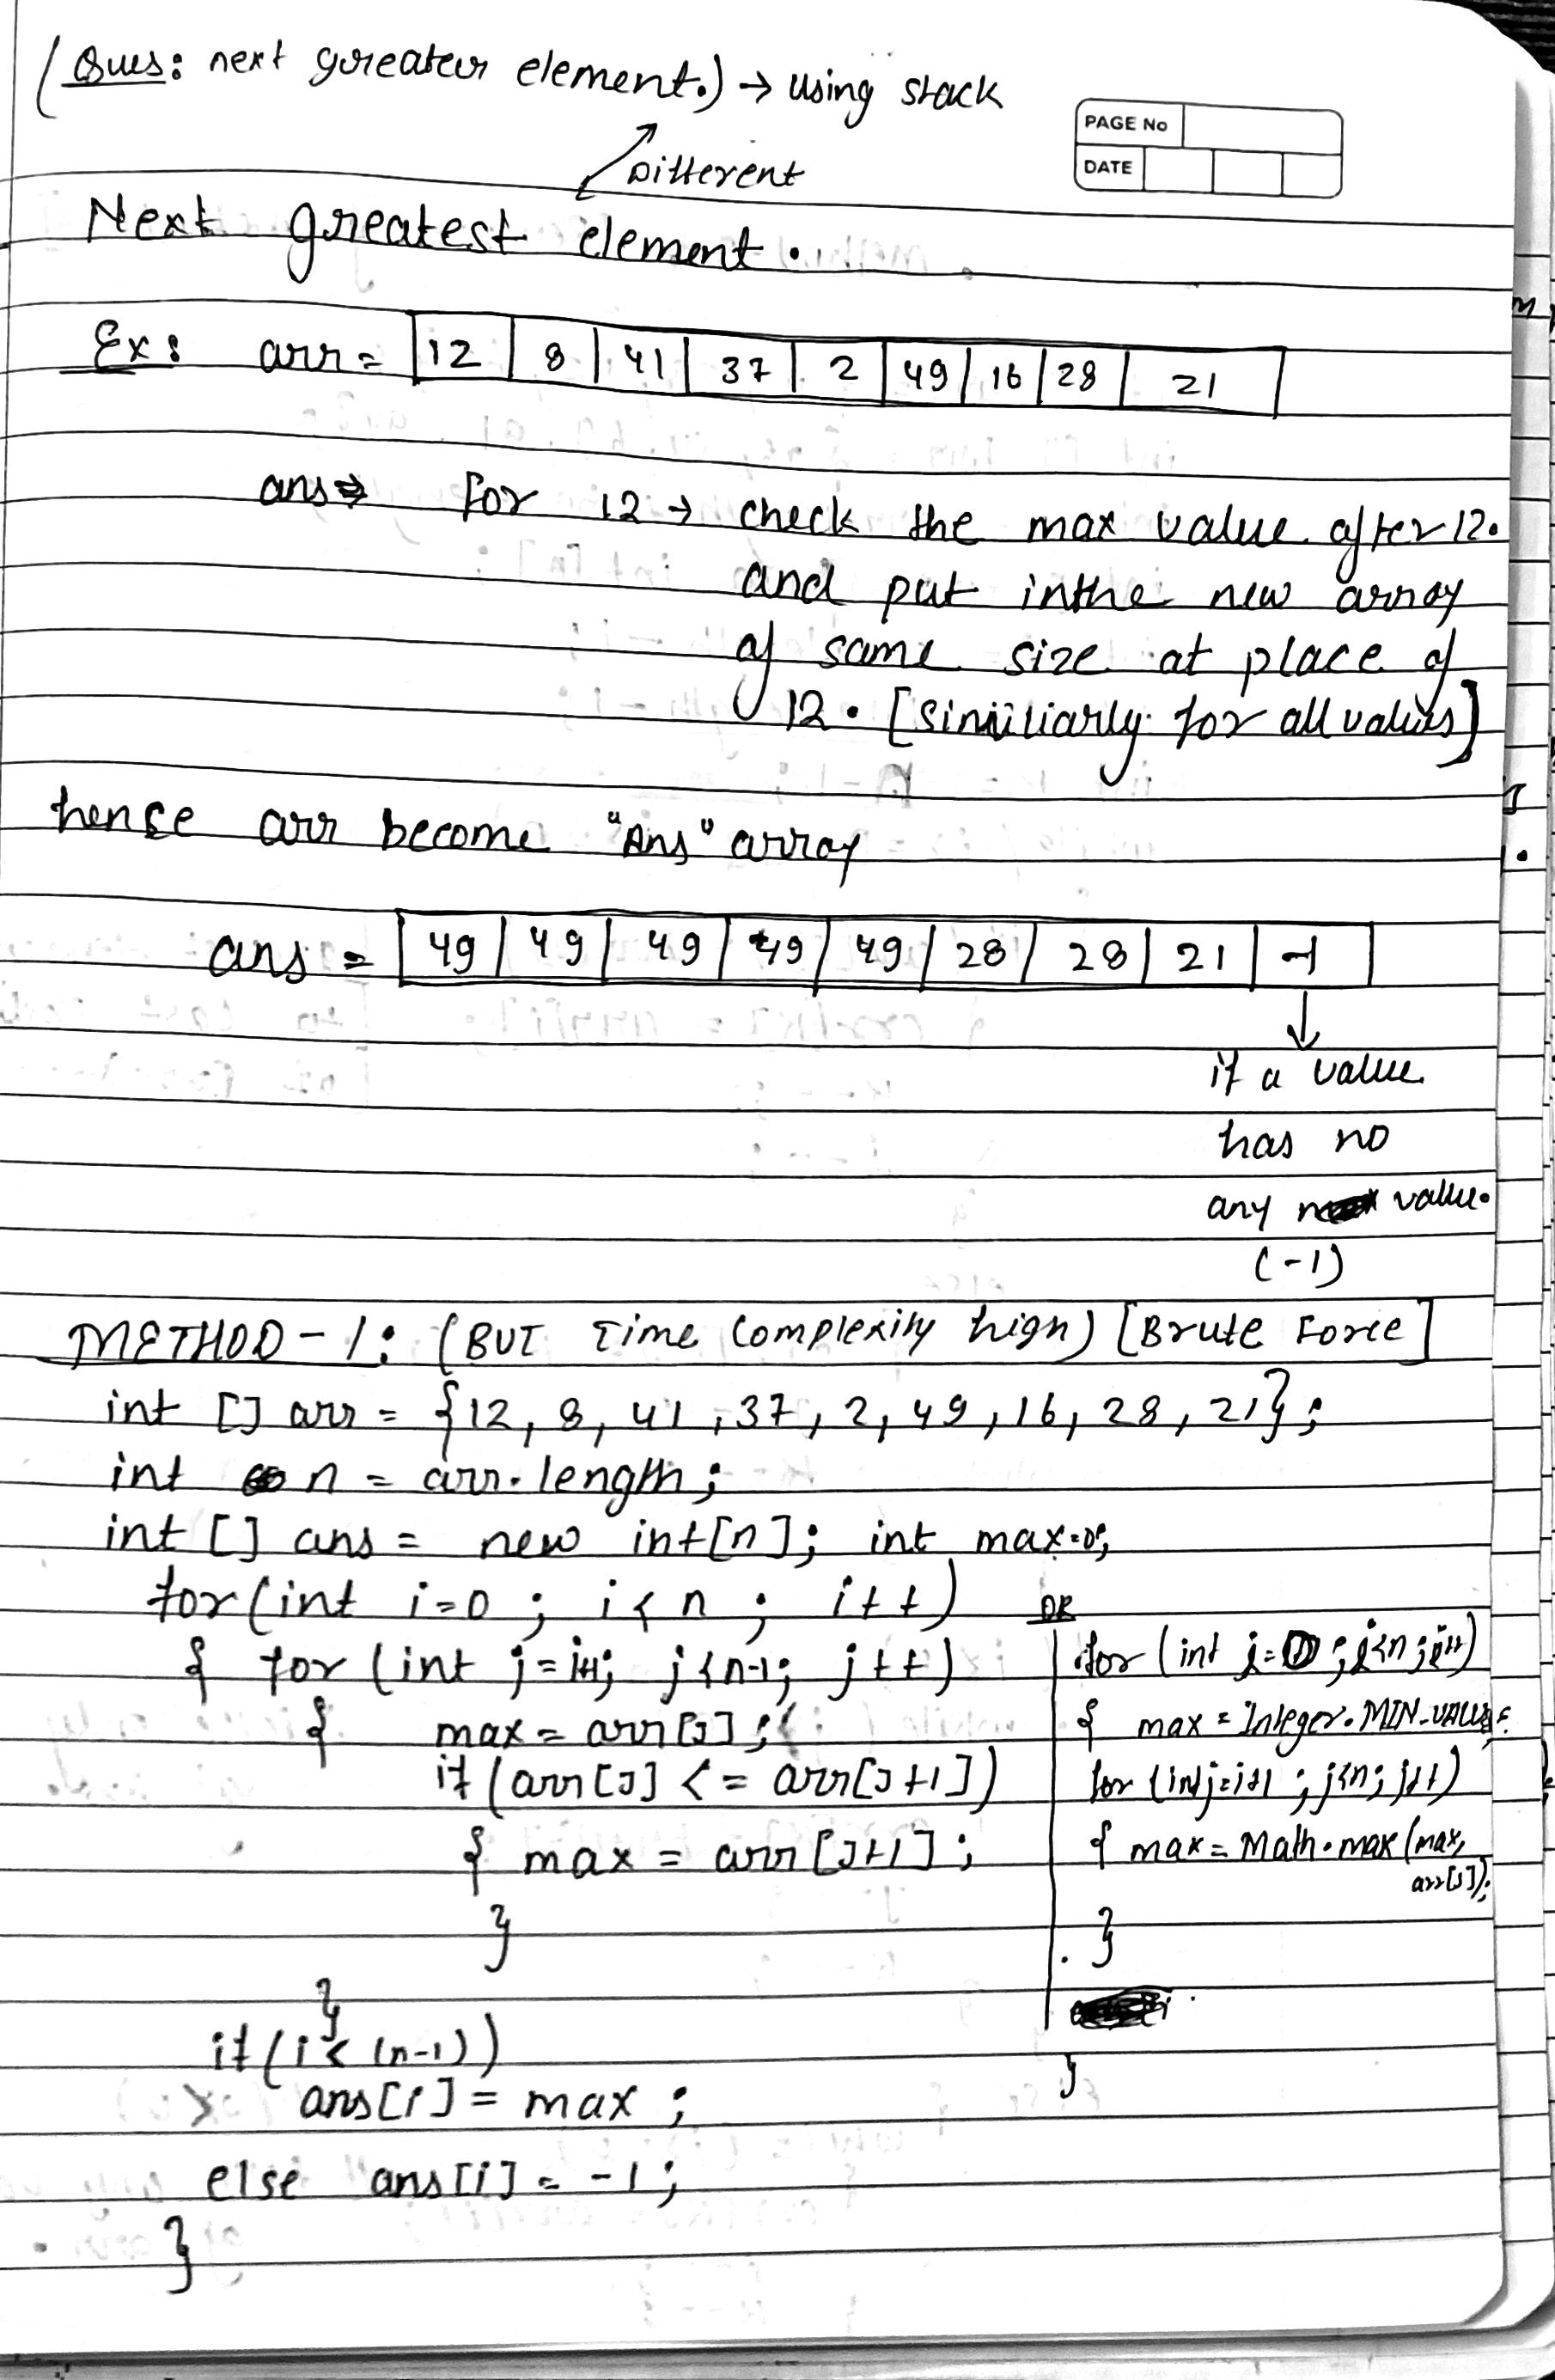 (Ques: next greater element.) → using stack
Different
PAGE No
DATE
Next greatest element.
Ex: arr = 12 8 41 37 2 49 16 28 21
ans ⇒ for 12 → check the max value after 12.
and put inthe new array
of same size at place of
12. [similiarly for all values]
hence arr become "Ans" array
ans = 49 49 49 49 49 28 28 21 -1
↓
if a value
has no
any value.
(-1)
METHOD-1: (BUT Time Complexity high) [Brute Force]
int [] arr = {12, 8, 41, 37, 2, 49, 16, 28, 21};
int n = arr.length;
int [] ans = new int[n]; int max=0;
for(int i=0 ; i<n ; i++)
{ for (int j=i+1; j<n-1; j++)
{ max = arr[J];
if (arr[J] <= arr[J+1])
{ max = arr[J+1];
}
}
if(i< (n-1))
ans[i] = max ;
else ans[i] = -1;
}
OR
for (int i=0 ; i<n ; i++)
{ max = Integer.MIN-VALUE;
for (int j=i+1 ; j<n; j++)
{ max = Math.max(max,
arr[J]);
}
}